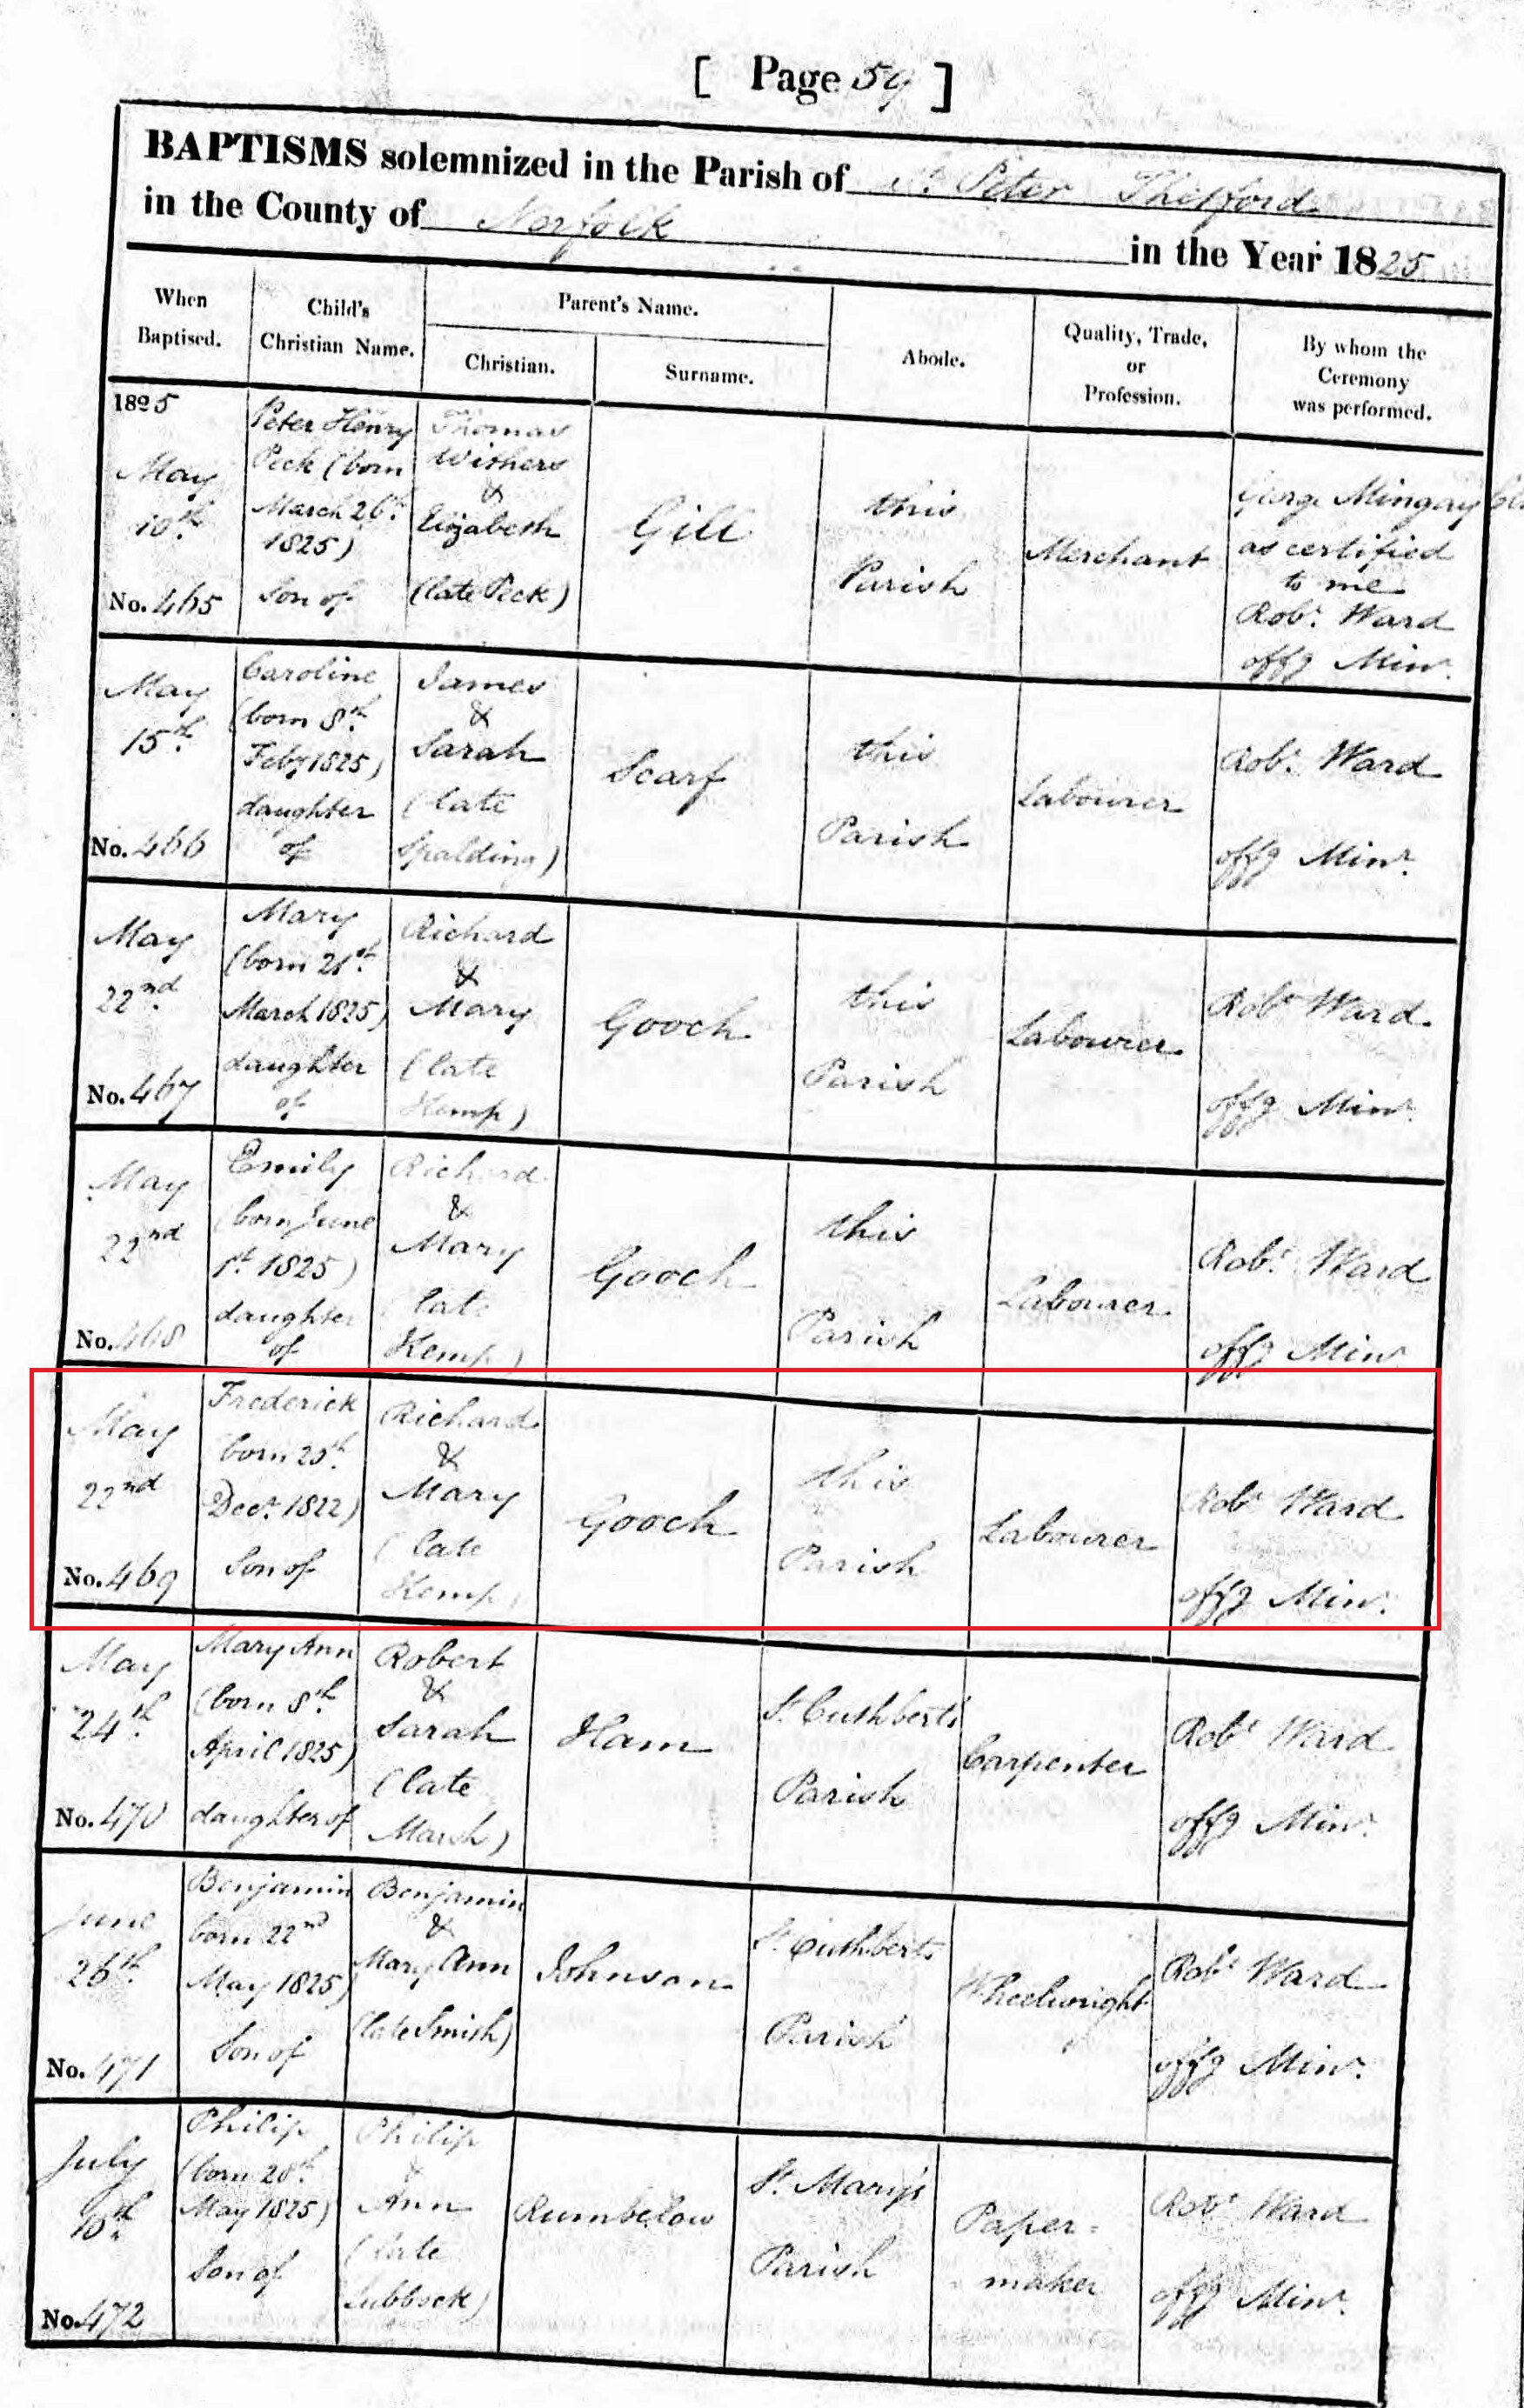 [ Page 59 ]
BAPTISMS solemnized in the Parish of St. Peter Thetford
in the County of Norfolk in the Year 1825
When
Baptised.
Child's
Christian Name.
Parent's Name.
Christian.
Surname.
Abode.
Quality, Trade,
or
Profession.
By whom the
Ceremony
was performed.
1825
May
10th.
No. 465
Peter Henry
Peck (born
March 26th.
1825)
Son of
Thomas
Withers
&
Elizabeth
(late Peck)
Gill
this
Parish
Merchant
George Mingay
as certified
to me
Robt. Ward
offg Minr.
May
15th.
No. 466
Caroline
(born 8th.
Feby 1825)
daughter
of
James
&
Sarah
(late
Spalding)
Scarf
this
Parish
Labourer
Robt. Ward
offg Minr.
May
22nd.
No. 467
Mary
(born 21st.
March 1825)
daughter
of
Richard
&
Mary
(late
Kemp)
Gooch
this
Parish
Labourer
Robt Ward
offg Minr.
May
22nd
No. 468
Emily
(born June
1st. 1825)
daughter
of
Richard
&
Mary
(late
Kemp)
Gooch
this
Parish
Labourer
Robt. Ward
offg Minr
May
22nd
No. 469
Frederick
born
Decr. 1822)
Son of
Richard
&
Mary
(late
Kemp)
Gooch
this
Parish
Labourer
Robt Ward
offg Minr.
May
24th.
No. 470
Mary Ann
(born 8th.
April 1825)
daughter of
Robert
&
Sarah
(late
Marsh)
Ham
St. Cuthbert's
Parish
Carpenter
Robt Ward
offg Minr.
June
26th.
No. 471
Benjamin
born 22nd
May 1825)
Son of
Benjamin
&
Mary Ann
(late Smith)
Johnson
St. Cuthberts
Parish
Wheelwright
Robt Ward
offg Minr.
July
10th.
No. 472
Philip
(born 20th.
May 1825)
Son of
Philip
&
Ann
(late
Lubbock)
Rumbelow
St. Mary's
Parish
Paper-
maker
Robt Ward
offg Minr.